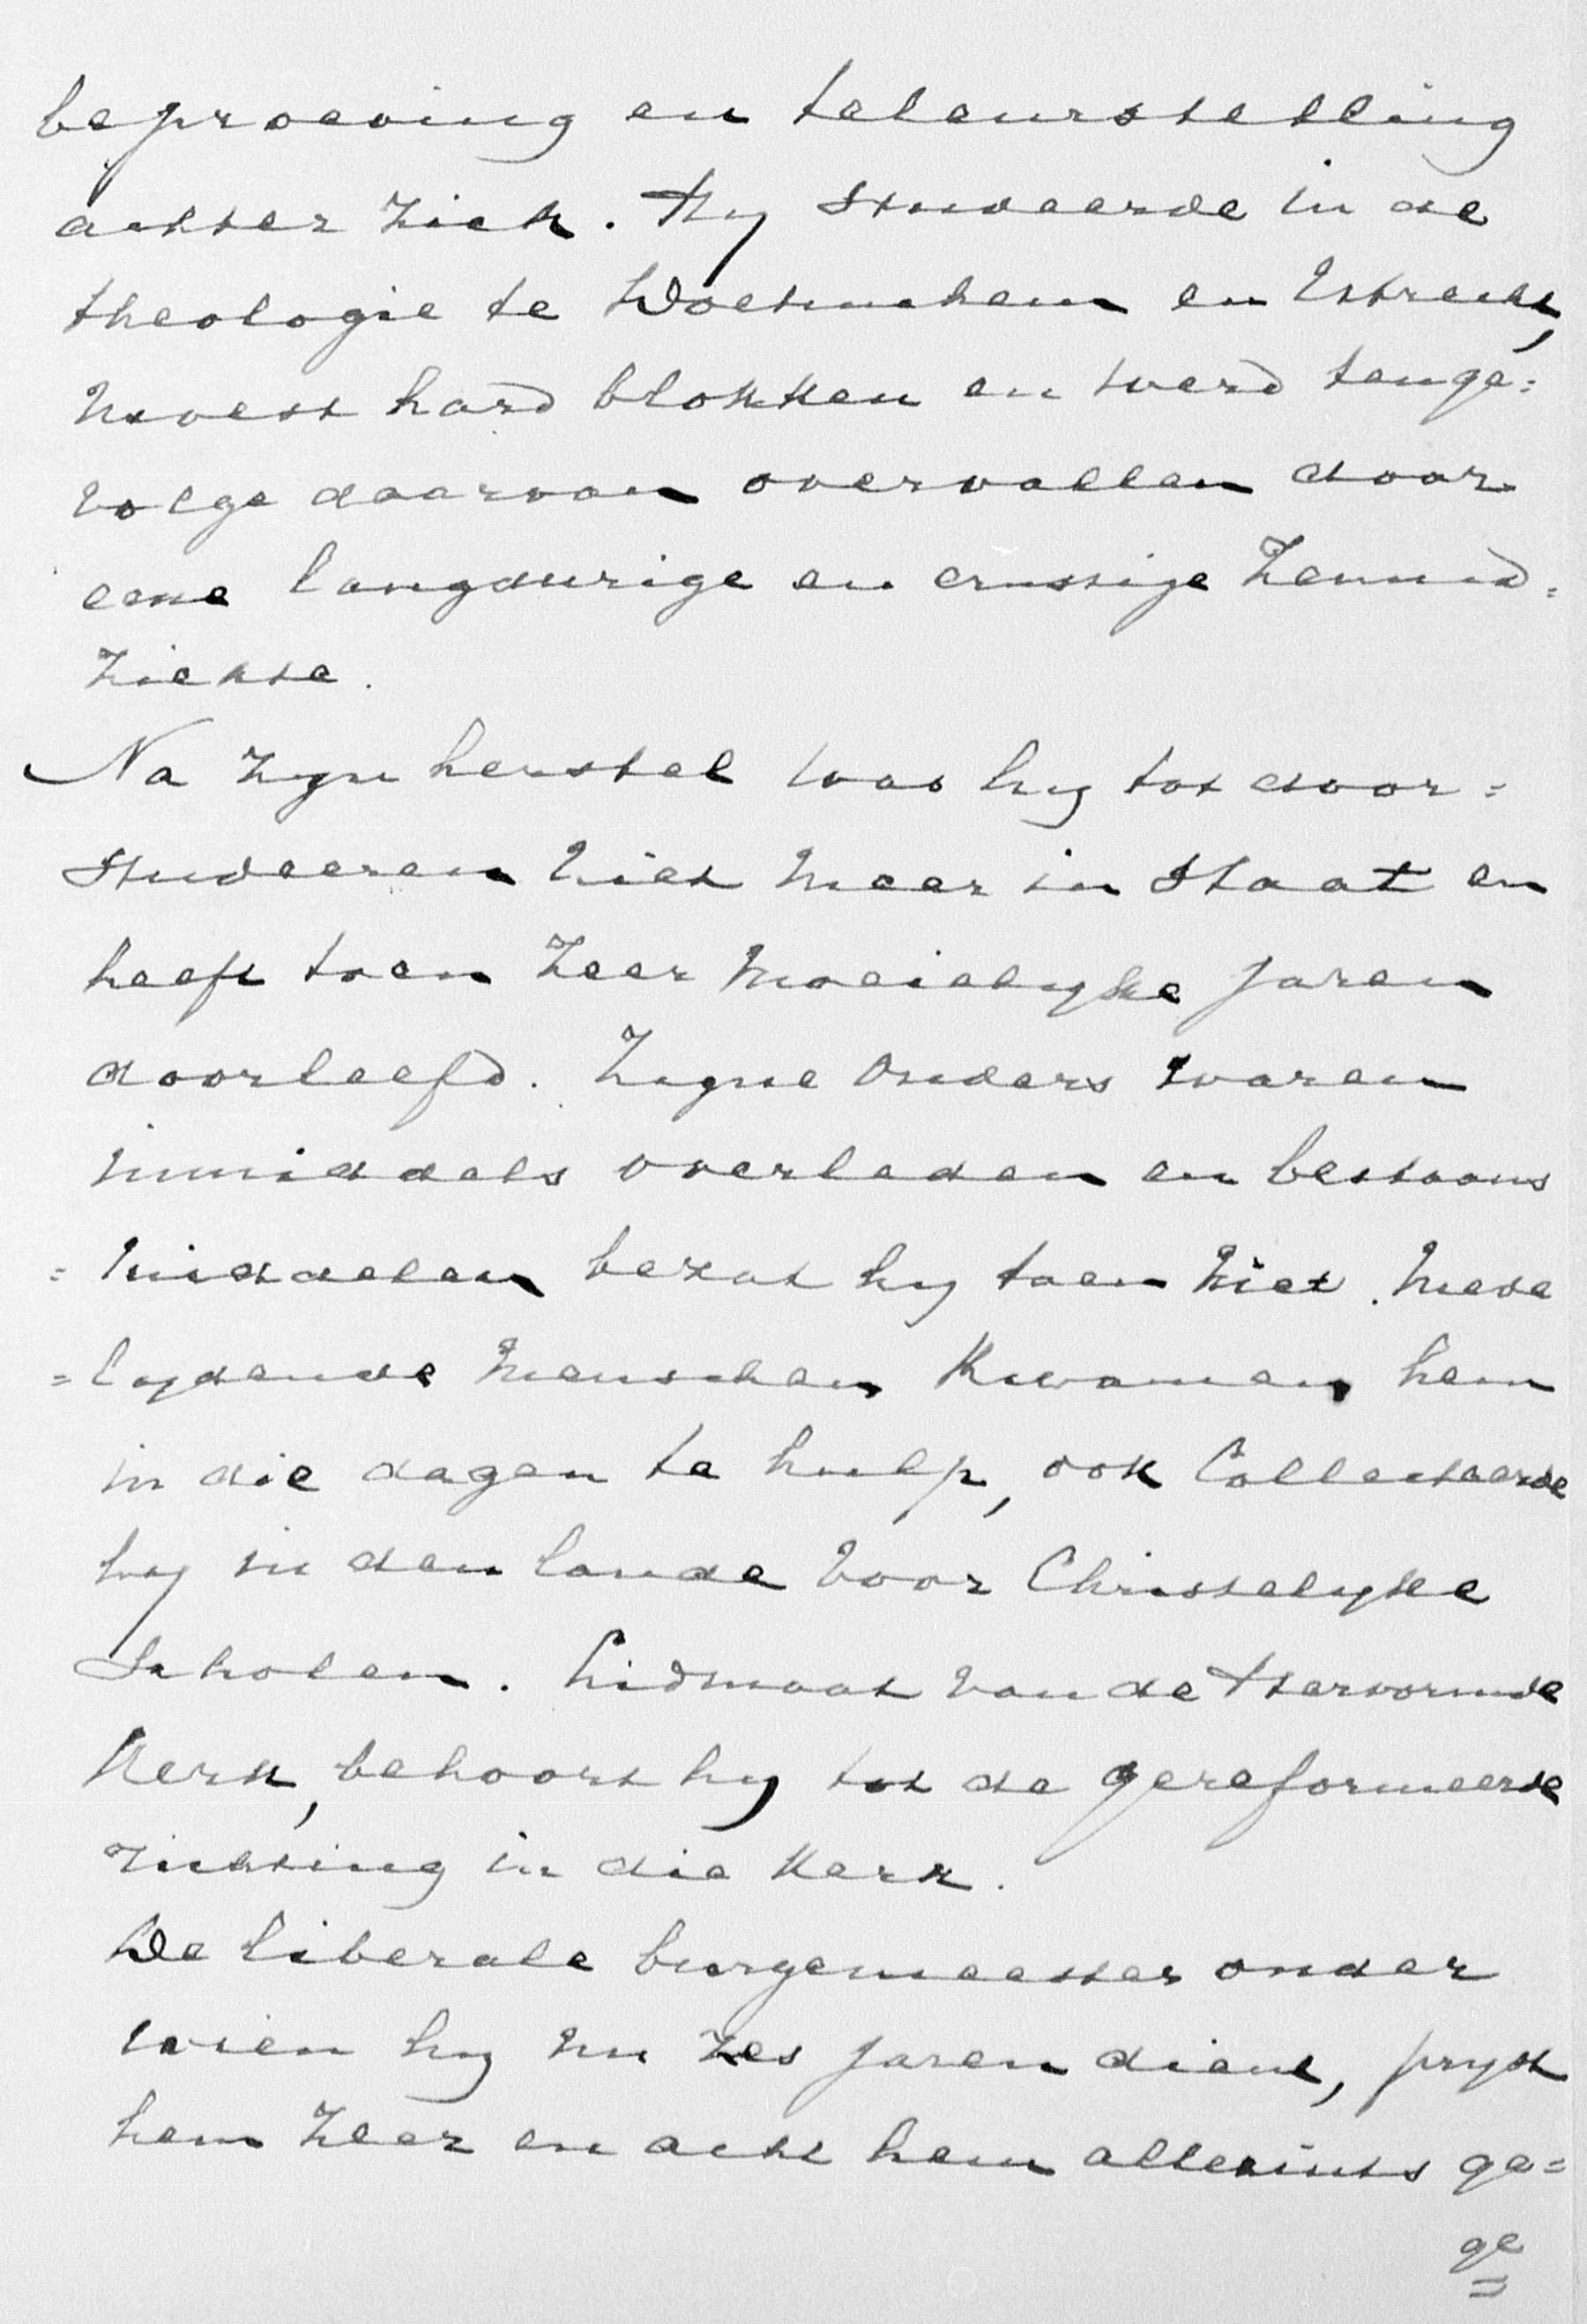 beproeving en teleurstelling
achter zich. Hy studeerde in de
theologie te Doetinchem en Utrecht,
moest hard blokken en werd tenge=
volge daarvan overvallen door
eene langdurige en ernstige Zenuw=
ziekte.
Na zyn herstel was hy tot door=
studeeren niet meer in staat en
heeft toen zeer moeielyke jaren
doorleefd. Zyne Ouders waren
inmiddels overleden en bestaans
=middelen bezat hy toen niet. Mede
=lydende menschen kwamen hem
in die dagen te hulp, ook Collecteerde
hy in den lande voor Christelyke
Scholen. Lidmaat van de Hervormde
Kerk, behoort hy tot de gereformeerde
richting in die Kerk.
De liberale burgemeester onder
wien hy nu zes jaren dient, pryst
hem zeer en acht hem alleszints ge=
ge
=